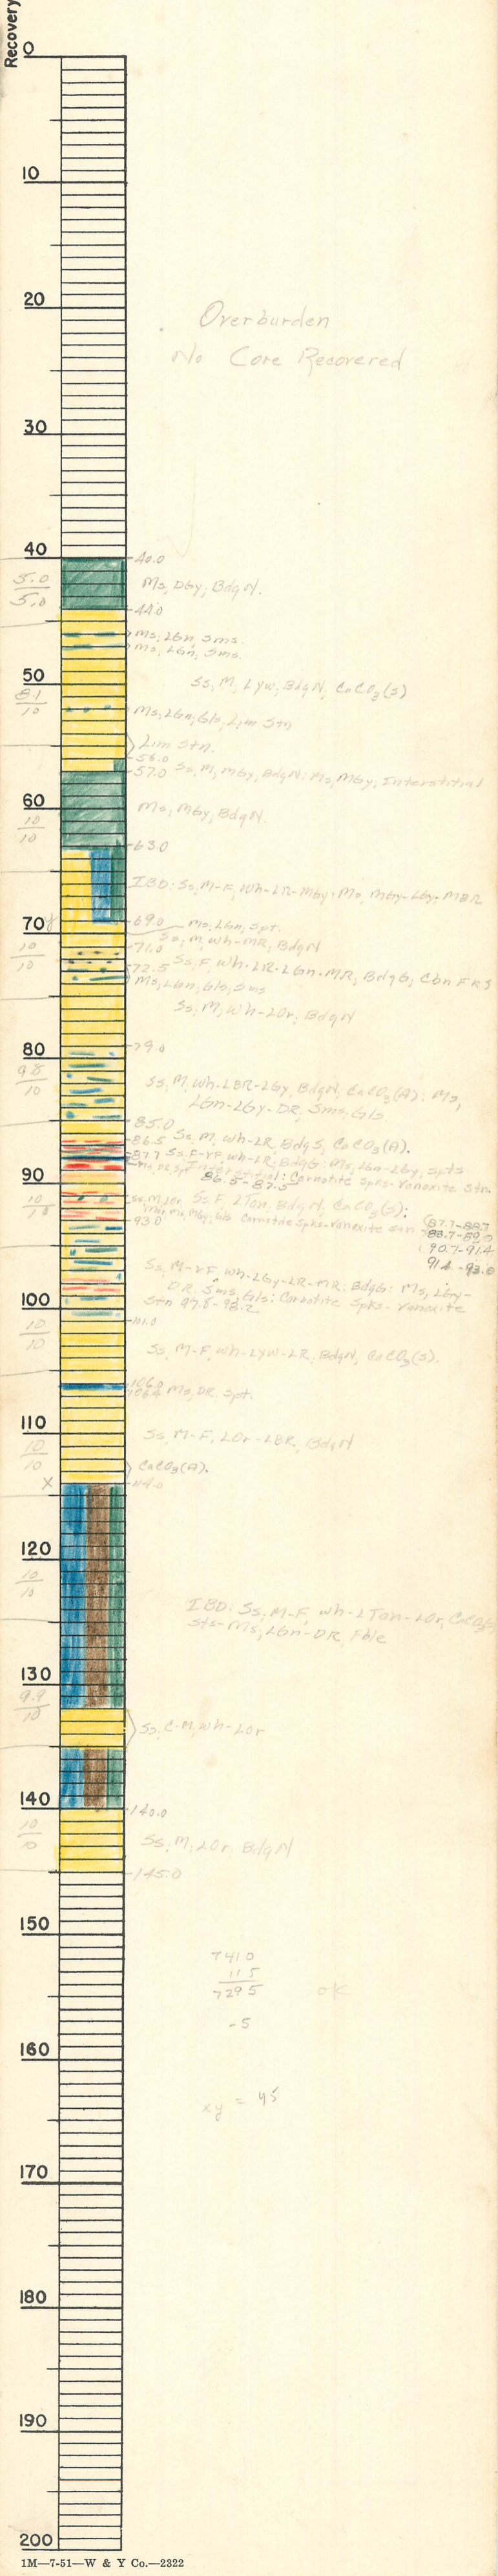 Recovery
0
10
20
Overburden
No Core Recovered
30
40
40.0
5.0
5.0
Ms, DGy, BdgN.
44.0
Ms, LGn, Sms.
Ms, LGn, Sms.
50
Ss, M, Lyw, BdgN, CaCO3(S)
8.1
10
Ms, LGn, Gls, Lim Stn
Lim Stn.
56.0
57.0 Ss, M, MGy, BdgN: Ms, MGy, Interstitial
60
Ms, MGy, BdgN.
10
10
63.0
IBD: Ss, M-F, Wh-LR-MGy: Ms, MGy-LGy, MBR
y
69.0 Ms, LGn, Spt.
70
Ss, M, Wh-MR, BdgN
71.0
10
10
72.5 Ss, F, Wh-LR-LGn-MR, BdgG, Cbn FRS
Ms, LGn, Gls, Sms
Ss, M, Wh-LOr, BdgN
79.0
80
9.8
10
Ss, M, Wh-LBR-LGy, BdgN, CaCO3(A): Ms,
LGn-LGy-DR, Sms, Gls.
85.0
86.5 Ss, M, Wh-LR, BdgS, CaCO3(A).
87.7 Ss, F-VF, Wh-LR, BdgG: Ms, LGn-LGy, Spts
Interstitial: Carnotite Spks-Vanoxite Stn.
86.5-87.5
90
10
10
Ss, F, LTan, BdgN, CaCO3(S):
Carnotite Spks-Vanoxite Stn
87.7-88.7
88.7-89.0
90.7-91.4
91.4-93.0
93.0
Ss, M-VF, Wh-LGy-LR-MR: BdgG: Ms, LGy-
DR, Sms, Gls: Carnotite Spks-Vanoxite
Stn 97.8-98.2
100
101.0
10
10
Ss, M-F, Wh-LYW-LR, BdgN, CaCO3(S).
106.0
106.4 Ms, DR, Spt.
110
Ss, M-F, LOr-LBR, BdgN
10
10
CaCO3(A).
x
114.0
120
10
10
IBD: Ss, M-F, Wh-LTan-LOr, CaCO3
Sts-Ms, LGn-DR, Fble
130
9.9
10
Ss, C-M, Wh-LOr
140
140.0
10
10
Ss, M, LOr, BdgN
145.0
150
7410
115
7295 OK
-5
160
xy = 45
170
180
190
200
1M—7-51—W & Y Co.—2322